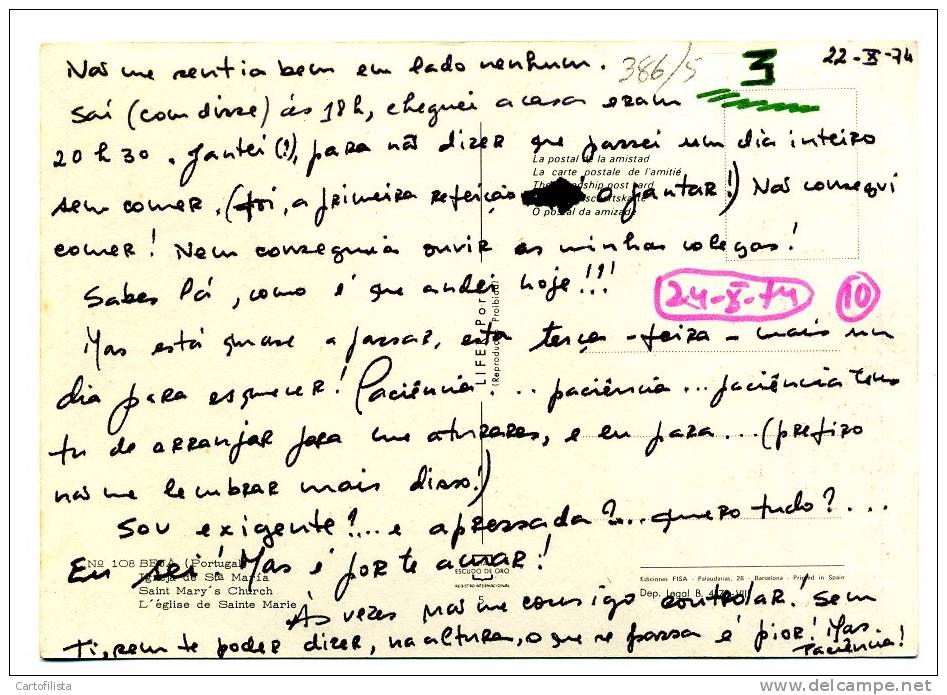 22-X-74
386/5
3
Não me sentia bem em lado nenhum.
Saí (com disse) às 18h, cheguei a casa eram
20h30. Jantei(!), para não dizer que passei um dia inteiro
sem comer. (foi, a primeira refeição o jantar!) Não consegui
comer! Nem conseguia ouvir as minhas colegas!
Sabes lá, como é que andei hoje!!!
24-X-74 10
Mas está quase a passar, esta terça-feira - mais um
dia para esquecer! Paciência... paciência... paciência tens
tu de arranjar para me aturares, e eu para... (prefiro
não me lembrar mais disso!)
Sou exigente?... e apressada?... quero tudo?...
Eu sei! Mas é por te amar!
Às vezes não me consigo controlar! Sem
Ti, sem te poder dizer, na altura, o que se passa é pior! Mas
Paciência!
La postal de la amistad
La carte postale de l'amitié
post card
O postal da amizade
LIFER-Por
(Reproducción Proibida)
Nº 108 BEJA (Portugal)
Igreja de Sta María
Saint Mary's Church
L'église de Sainte Marie
ESCUDO DE ORO
REGISTRO INTERNACIONAL
5
Ediciones FISA - Palaudarias, 26 - Barcelona - Printed in Spain
Dep. Legal B.
Cartofilista
delcampe.net